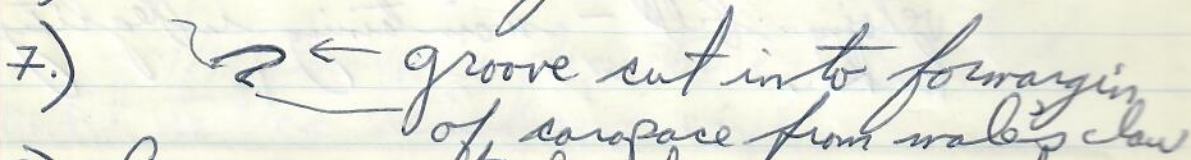 7.) ← groove cut into formargin
of carapace from male's claw